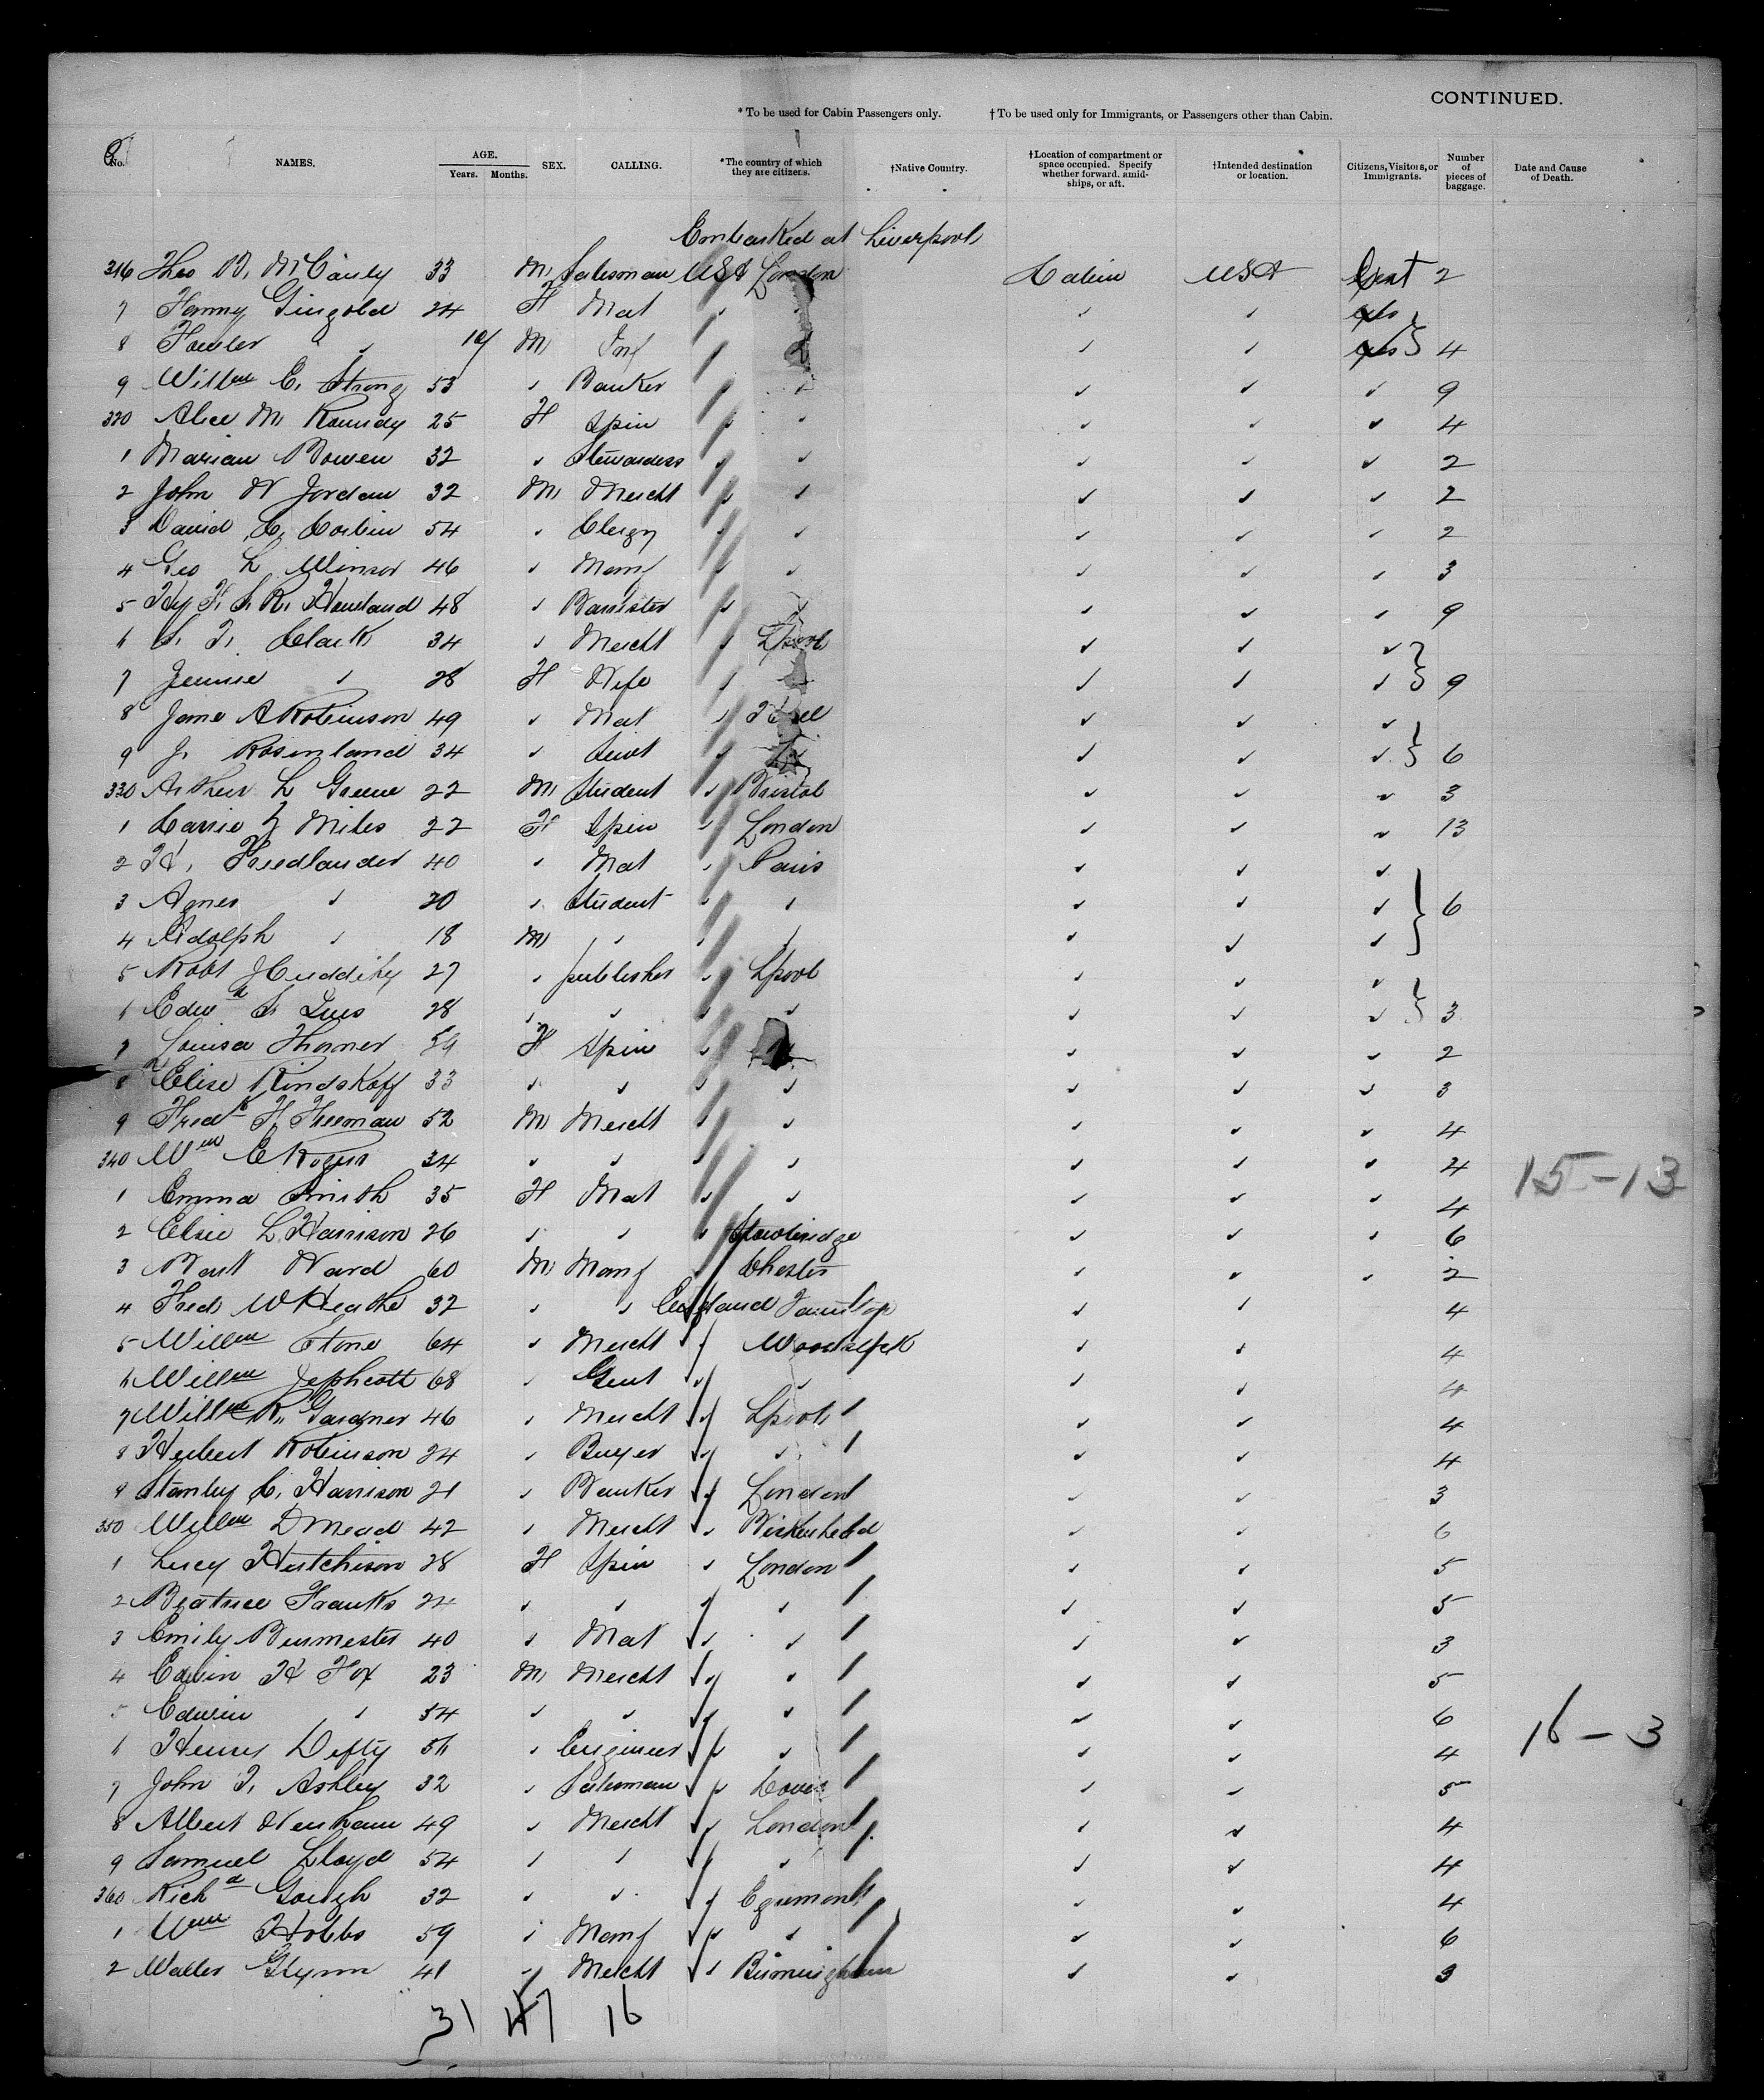 CONTINUED.
* To be used for Cabin Passengers only. † To be used only for Immigrants, or Passengers other than Cabin.
No. NAMES. AGE. Years. Months. SEX. CALLING. *The country of which they are citizens. †Native Country. †Location of compartment or space occupied. Specify whether forward, amidships, or aft. †Intended destination or location. Citizens, Visitors, or Immigrants. Number of pieces of baggage. Date and Cause of Death.
Embarked at Liverpool
316 Theo B. McCauly 33 M Salesman USA London Cabin USA 2
7 Fanny Gingold 24 F Mat
8 Fowler " 10/ M Inf 4
9 Willm C. Strong 53 Banker 9
320 Alice M 25 F Spin 4
1 Marian Bowen 32 Stewardess 2
2 John W Jordan 32 M Mercht 2
3 David C. Corbin 54 Clergy 2
4 Geo L Winsor 46 Manf 3
5 Hy F. S. R. Howland 48 Barrister 9
6 S. T. Clark 34 Mercht Lpool
7 Jennie 28 F Wife 9
8 Jane A Robinson 49 Mat
9 J. Rosinland 34 Servt 6
330 Arthur L Greene 22 M Student Bristol 3
1 Carrie Z Miles 22 F Spin London 13
2 H. Friedlander 40 Mat Paris
3 Agnes 20 Student 6
4 Adolph 18 M
5 Robt Cuddihy 27 publisher Lpool
6 Edwd S. 28 3
7 Louisa Thorner 59 F Spin 2
8 Elise Kindskoff 33 3
9 Fredk F. Freeman 52 M Mercht 4
340 Wm C Rogers 34 4 15-13
1 Emma Smith 35 F Mat 4
2 Elsie L Harrison 26 6
3 Bart Ward 60 M Manf Chester 2
4 Fred W Heathe 32 England 4
5 Willm Stone 64 Mercht 4
6 Willm Jephcott 68 Gent 4
7 Willm R. Gardner 46 Mercht Lpool 4
8 Herbert Robinson 24 Buyer 4
9 Stanley C. Harrison 21 Banker London 3
350 Willm D Mead 42 Mercht Birkenhead 6
1 Lucy Hutchison 28 F Spin London 5
2 Beatrice Franks 24 5
3 Emily Burmester 40 Mat 3
4 Edwin H Fox 23 M Mercht 5
5 Edwin 54 6
6 Henry Defty 56 Engineer 4 16-3
7 John T. Ashley 32 Salesman Dover 5
8 Albert Newham 49 Mercht London 4
9 Samuel Lloyd 54 4
360 Richd Gough 32 Egremont 4
1 Wm Hobbs 59 Manf 6
2 Walter Glynn 41 Mercht Birmingham 3
31 47 16